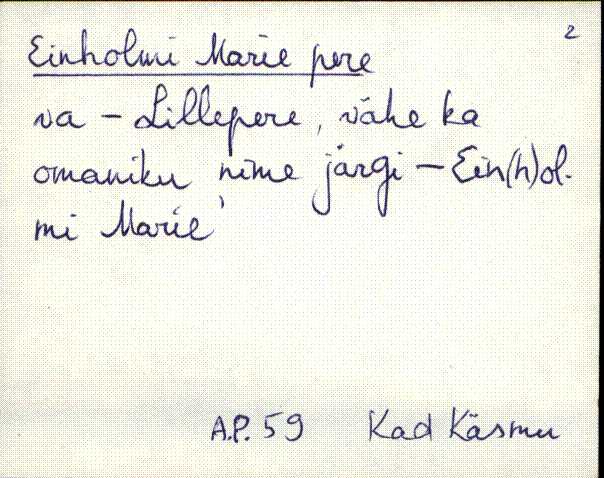 2
Einholmi Marie pere
va - Lillepere, vähe ka
omaniku nime järgi - Ein(h)ol-
mi Marie'
A.P. 59 Kad Käsmu